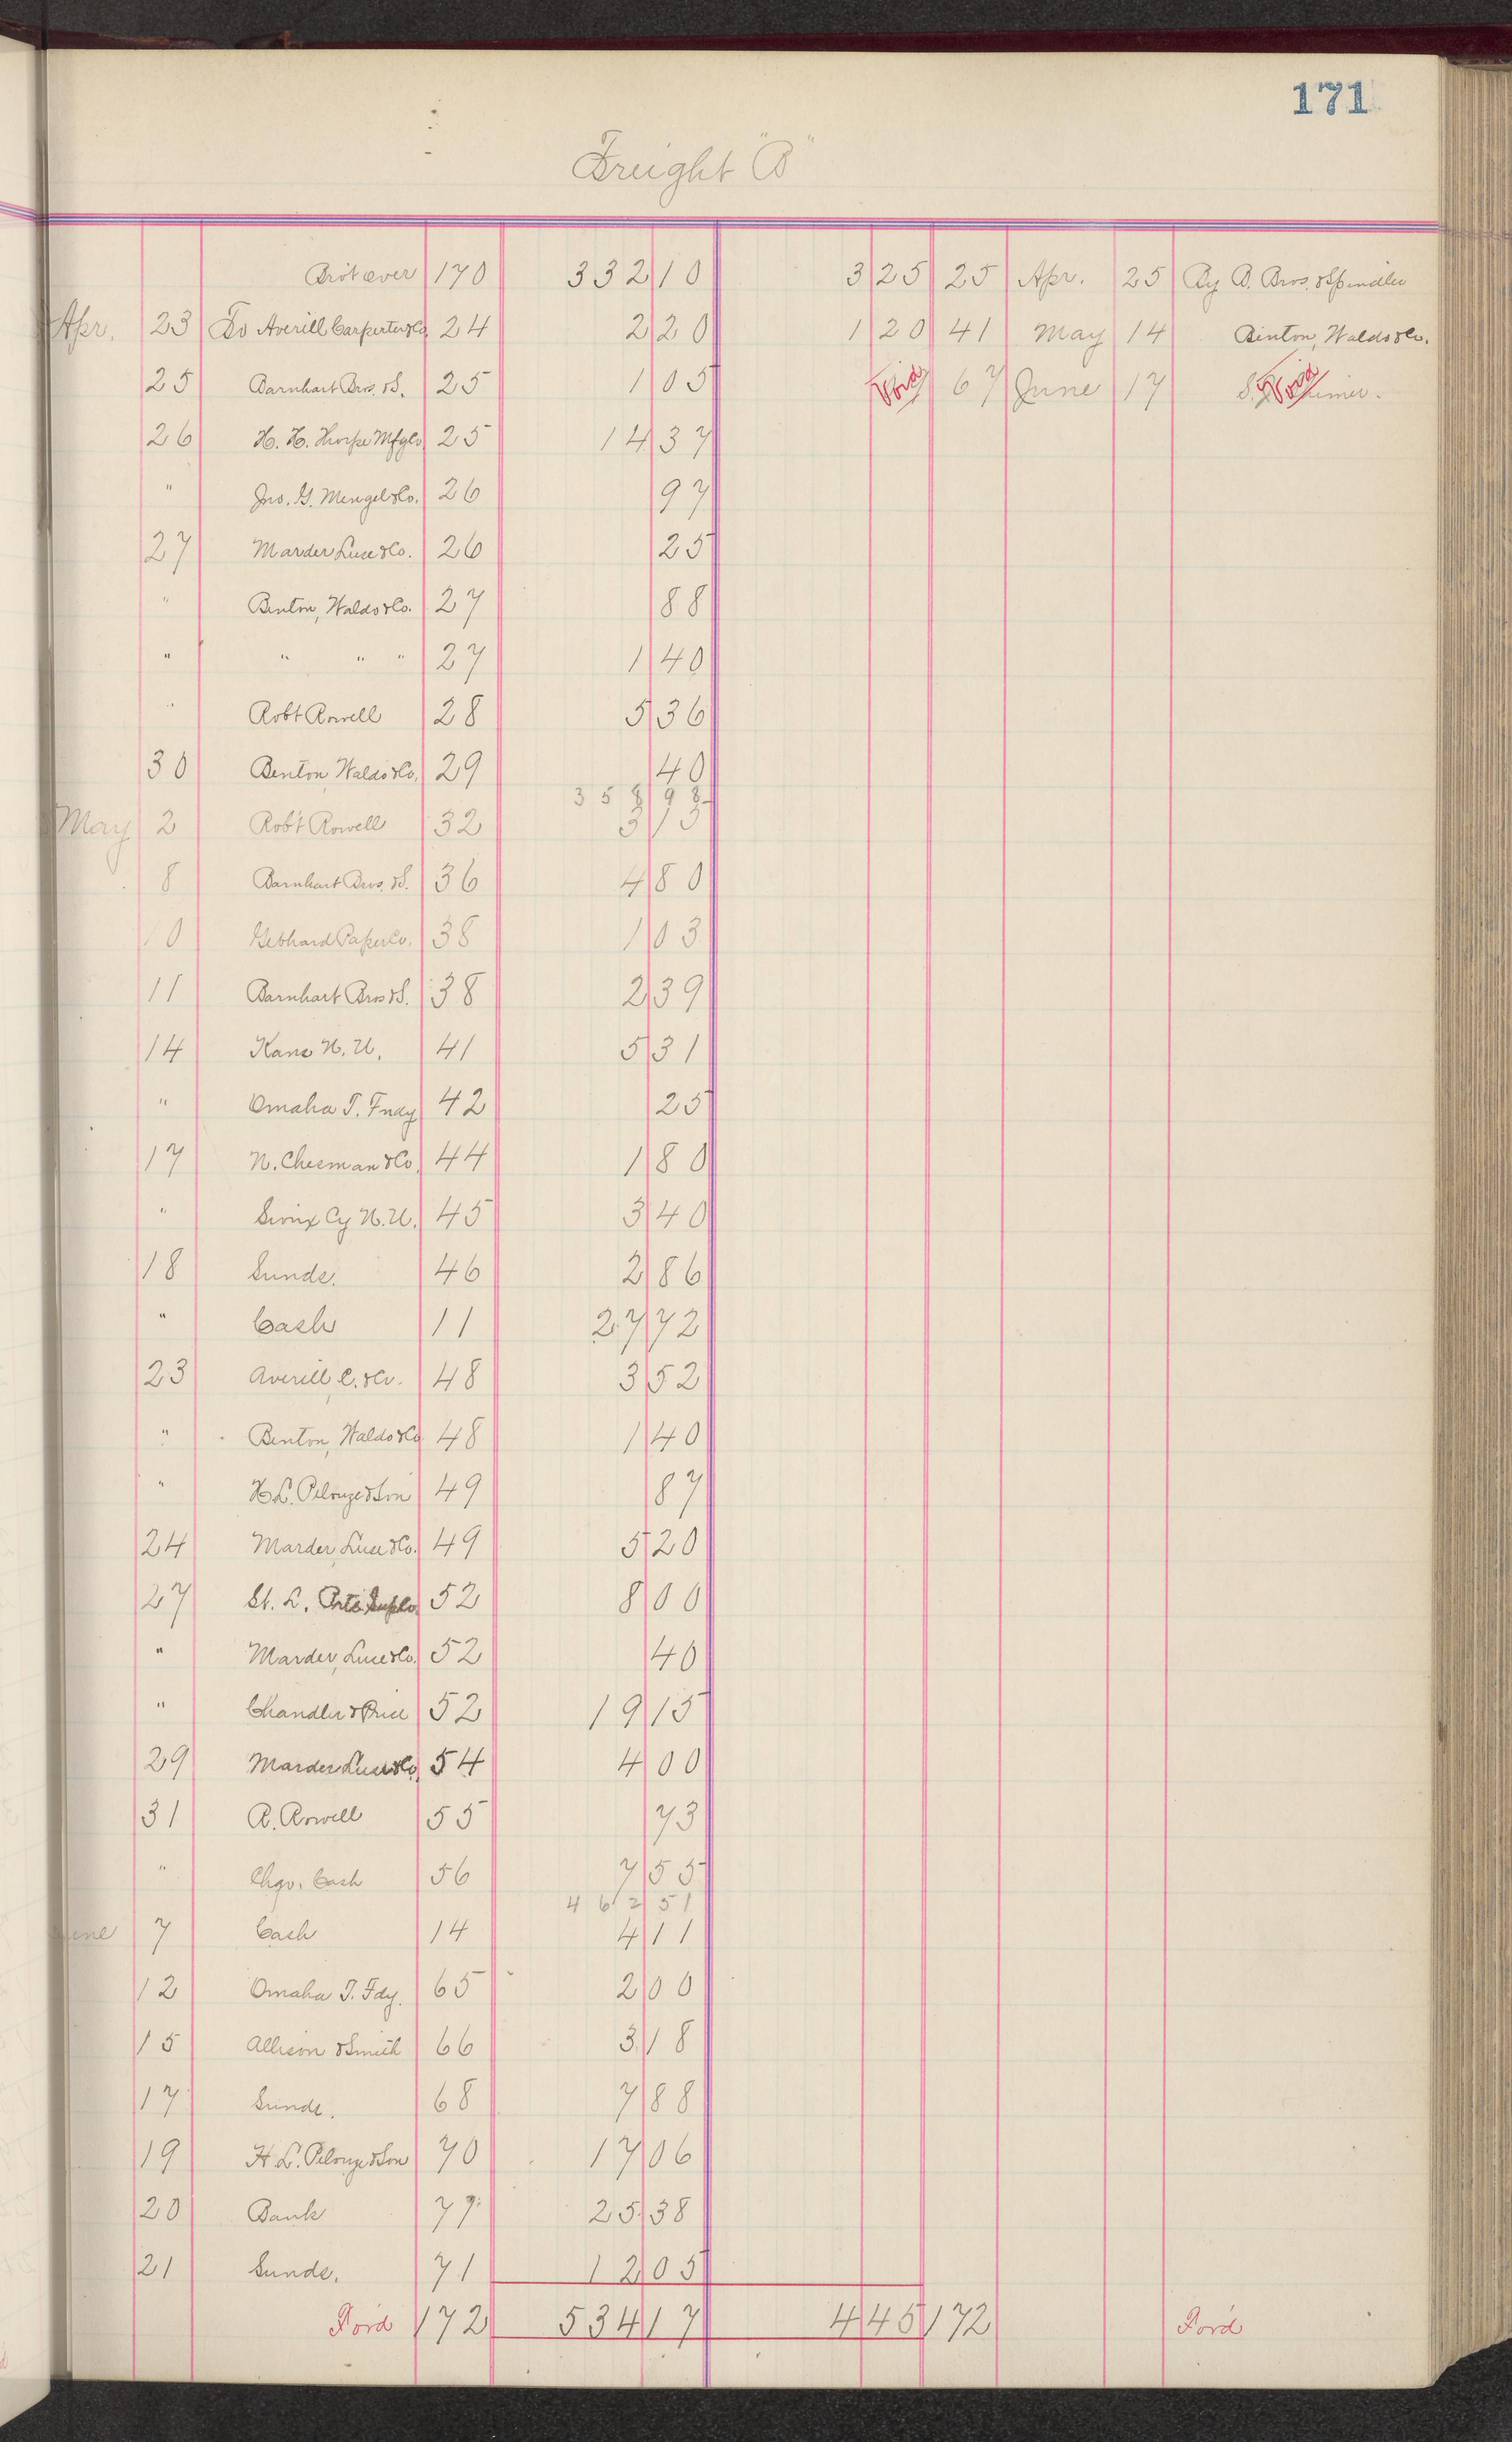 171
Freight "B"
Bro't over 170 332 10 3 25 25 Apr. 25 By B. Bros. & Spindler
Apr. 23 To Averill Carpenter & Co. 24 2 20 1 20 41 May 14 Benton, Waldo & Co.
25 Barnhart Bros. & S. 25 1 05 Void 67 June 17 Void
26 H. H. Thorpe Mfg Co. 25 14 37
" Jno. G. Mengel & Co. 26 97
27 Marder Luse & Co. 26 25
" Benton, Waldo & Co. 27 88
" " " " 27 1 40
" Robt Rowell 28 5 36
30 Benton Waldo & Co. 29 40
358 98
May 2 Robt Rowell 32 3 13
8 Barnhart Bros. & S. 36 4 80
10 Gebhard Paper Co. 38 1 03
11 Barnhart Bros & S. 38 2 39
14 Kans N. U. 41 5 31
" Omaha T. Fndy 42 25
17 N. Chesman & Co. 44 1 80
" Sioux Cy N. U. 45 3 40
18 Sunds. 46 2 86
" Cash 11 27 72
23 Averill C. & Co. 48 3 52
" Benton, Waldo & Co 48 1 40
" H L. Pelouze & Son 49 87
24 Marder, Luse & Co. 49 5 20
27 St. L. 52 8 00
" Marder, Luse & Co. 52 40
" Chandler & Price 52 19 15
29 Marder Luse & Co. 54 4 00
31 R. Rowell 55 73
" Chgo. Cash 56 7 55
462 51
June 7 Cash 14 4 11
12 Omaha T. Fdy. 65 2 00
15 Allison & Smith 66 3 18
17 Sunds. 68 7 88
19 H. L. Pelouze & Son 70 17 06
20 Bank 77 25 38
21 Sunds. 71 12 05
Ford 172 534 17 4 45 172 Ford